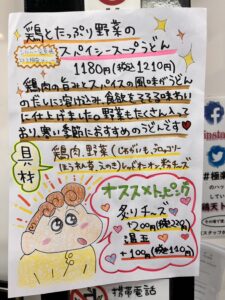 鶏とたっぷり野菜の
スパイシースープうどん
1180円(税込1210円)
鶏肉の旨みとスパイスの風味がうどん
のだしに溶け込み、食欲をそそる味わい
に仕上げました。野菜もたくさん入って
おり、寒い季節におすすめのうどんです
具材
鶏肉、野菜(じゃがいも、ブロッコリー
ほうれん草、えのき)しゃけ、オニオン、粉チーズ
オススメトッピング
炙りチーズ
+200円(税込220円)
温玉
+100円(税込110円)
insta
#極楽
のハッ
携帯電話